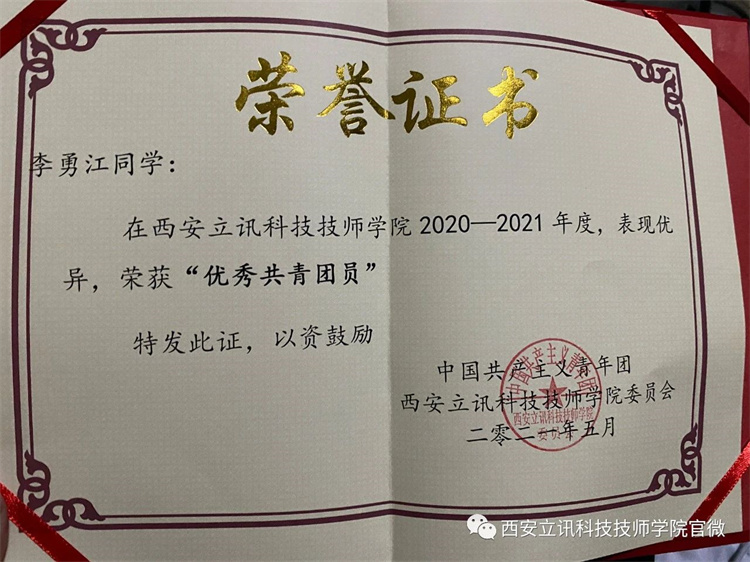 荣誉证书
李勇江同学：
在西安立讯科技技师学院2020—2021年度，表现优
异，荣获“优秀共青团员”
特发此证，以资鼓励
中国共产主义青年团
西安立讯科技技师学院委员会
二零二一年五月
中国共产主义青年团
西安立讯科技技师学院
委员会
西安立讯科技技师学院官微